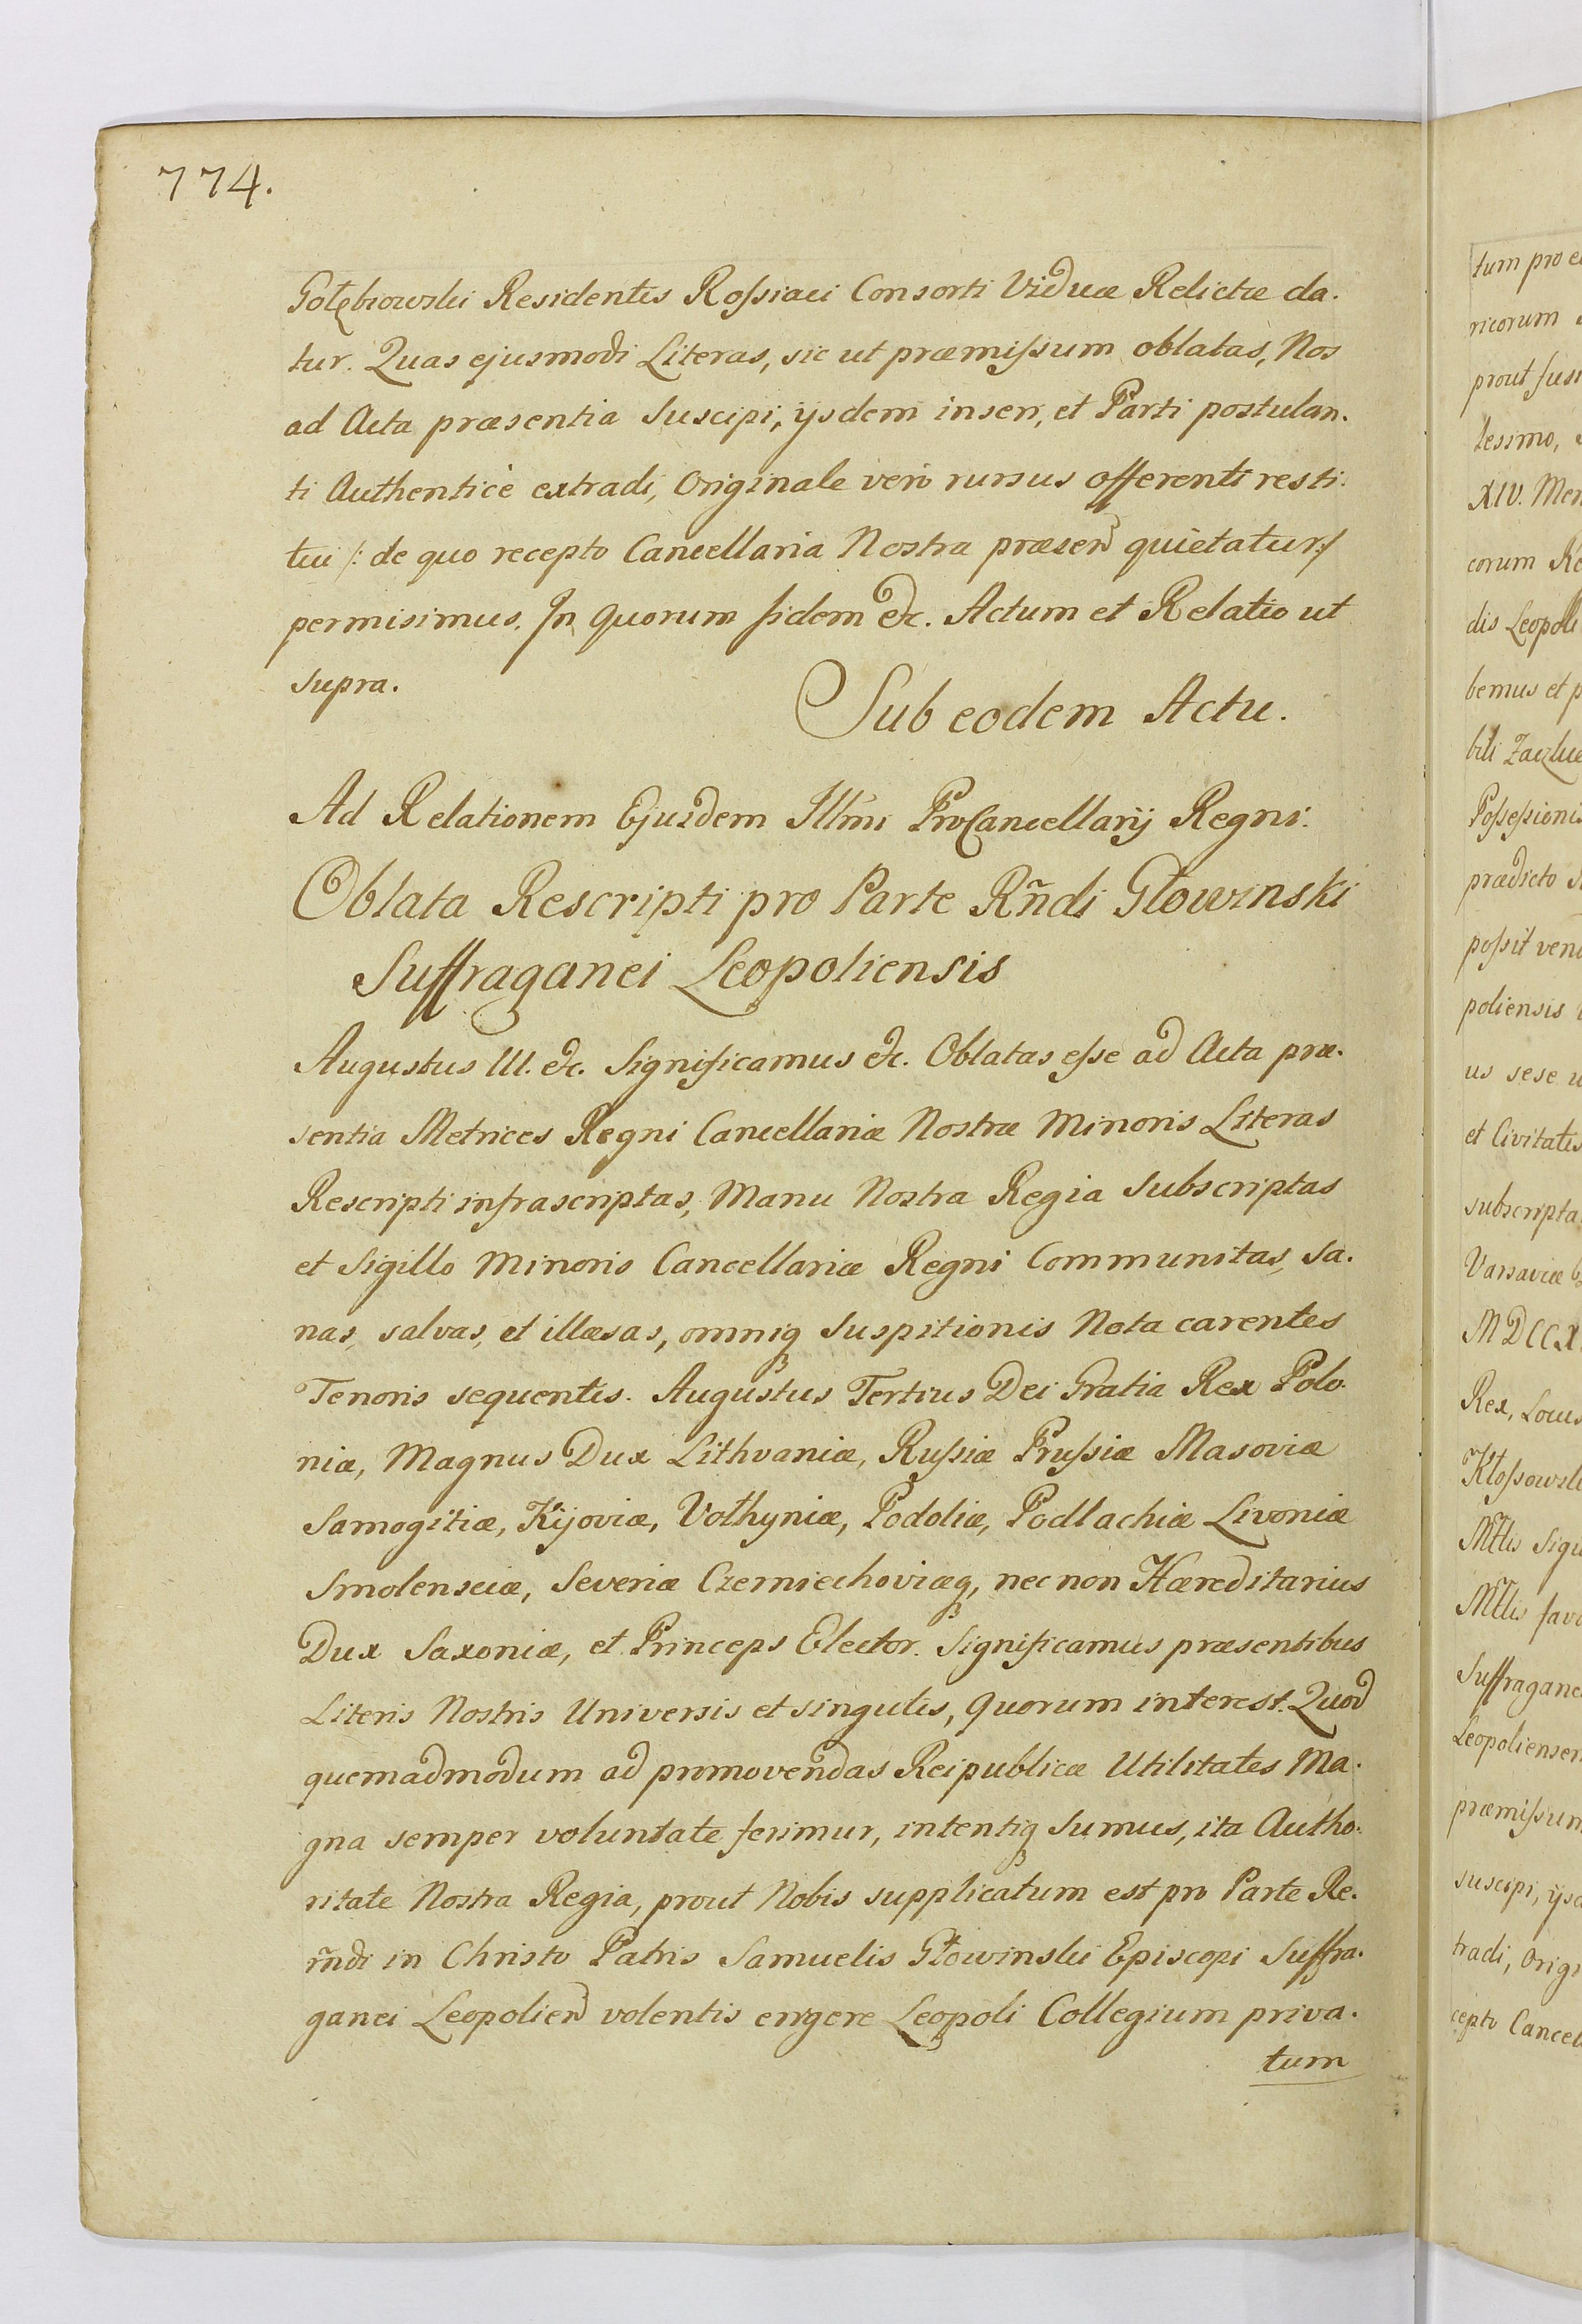 774.
Gołębiowski Residentis Rossiaci Consorti Viduæ Relictæ da-
tur. Quas ejusmodi Literas, sic ut præmissum oblatas, Nos
ad Acta præsentia suscipi, ijsdem inseri, et Parti postulan-
ti Authenticè extradi, Originale verò rursus offerenti resti-
tui /: de quo recepto Cancellaria Nostra præsen quietatur :/
permisimus. In quorum fidem &c. Actum et Relatio ut
supra.
Sub eodem Actu.
Ad Relationem Ejusdem Illmi ProCancellarij Regni.
Oblata Rescripti pro Parte Rñdi Głowinski
Suffraganei Leopoliensis
Augustus III. &c. Significamus &c. Oblatas esse ad Acta præ-
sentia Metrices Regni Cancellariæ Nostræ Minoris Literas
Rescripti infrascriptas, Manu Nostra Regia subscriptas
et Sigillo Minoris Cancellariæ Regni Communitas, sa-
nas, salvas, et illæsas, omniq suspitionis Nota carentes
Tenoris sequentis. Augustus Tertius Dei Gratia Rex Polo-
niæ, Magnus Dux Lithvaniæ, Russiæ Prussiæ Masoviæ
Samogitiæ, Kijoviæ, Volhyniæ, Podoliæ, Podlachiæ Livoniæ
Smolensciæ, Severiæ Czerniechoviæq, nec non Hæreditarius
Dux Saxoniæ, et Princeps Elector. Significamus præsentibus
Literis Nostris Universis et singulis, quorum interest. Quod
quemadmodum ad promovendas Reipublicæ Utilitates Ma-
gna semper voluntate ferimur, intentiq sumus, ita Autho-
ritate Nostra Regia, prout Nobis supplicatum est pro Parte Re-
rñdi in Christo Patris Samuelis Głowinski Episcopi Suffra-
ganei Leopolien volentis erigere Leopoli Collegium priva-
tum
tum pro
ricorum
prout
tesimo,
XIV.
corum
dis Leopoli
bemus et
bili
Possessionis
prædicto
possit
poliensis
us sese
et Civitatis
subscripta
Varsaviæ
MDCCX
Rex, Locus
Kłossowski
Mttis
Mttis
Suffragane
Leopoliensem
præmissum
suscipi,
tradi,
cepto Cancel